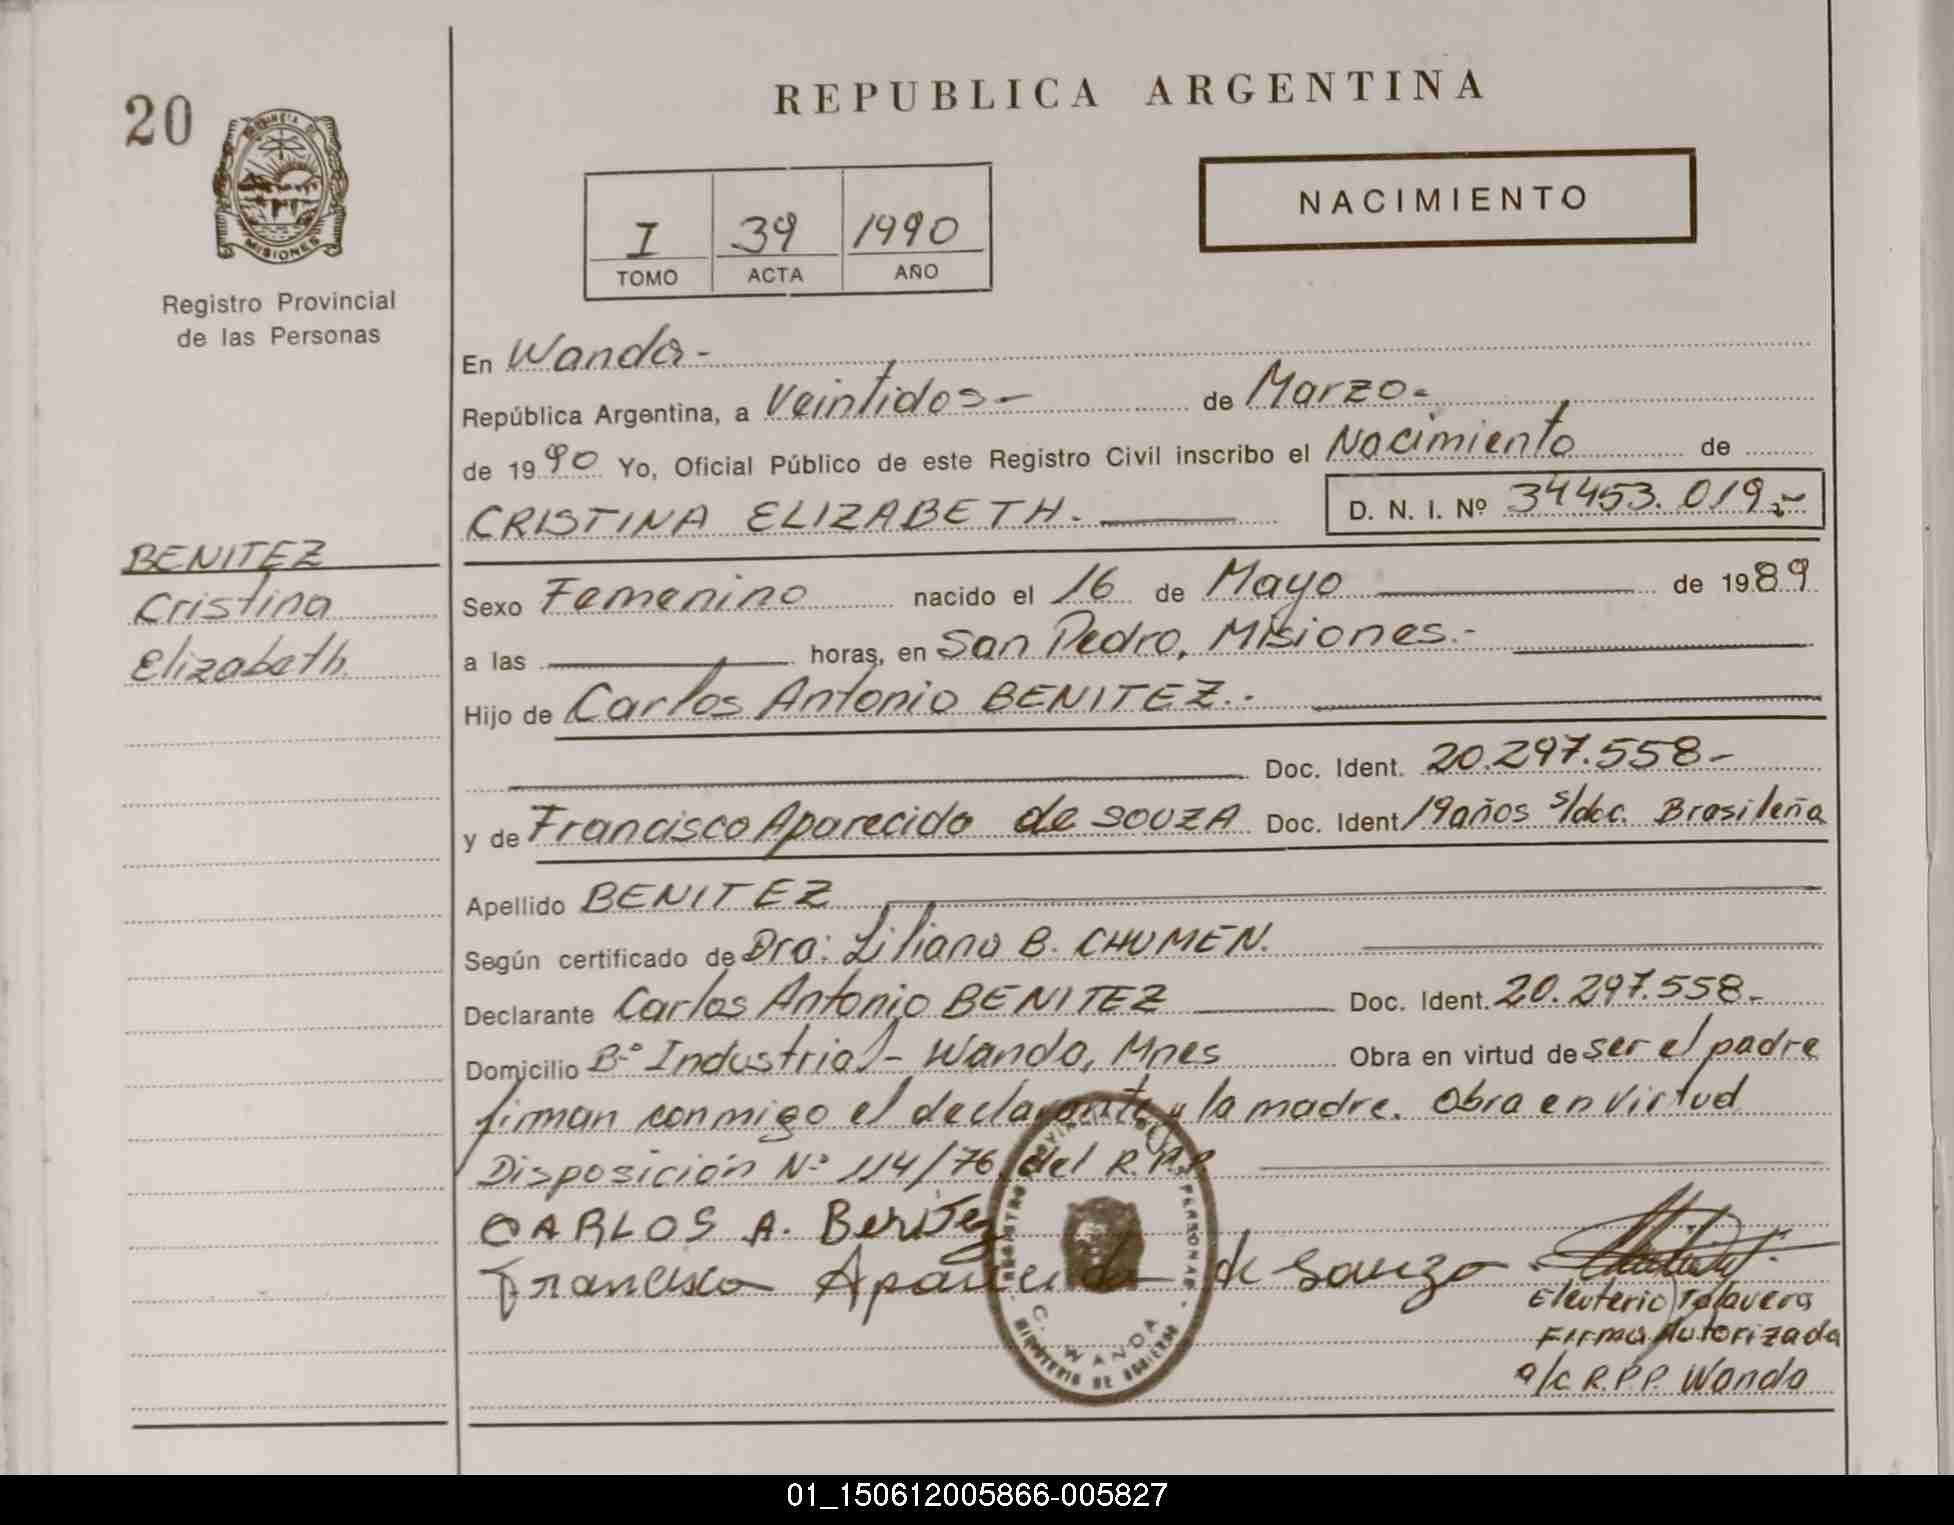 REPUBLICA ARGENTINA
20
PROVINCIA DE
MISIONES
Registro Provincial
de las Personas
NACIMIENTO
I 39 1990
TOMO ACTA AÑO
En Wanda-
República Argentina, a Veintidos- de Marzo-
de 1990 Yo, Oficial Público de este Registro Civil inscribo el Nacimiento de
CRISTINA ELIZABETH. D. N. I. Nº 34453.019.-
BENITEZ
Cristina
Elizabeth.
Sexo Femenino nacido el 16 de Mayo de 1989
a las horas, en San Pedro, Misiones.-
Hijo de Carlos Antonio BENITEZ.-
Doc. Ident. 20.297.558-
y de Francisco Aparecida de SOUZA Doc. Ident 19años s/doc. Brasileña
Apellido BENITEZ
Según certificado de Dra: Liliana B. CHUMEN.
Declarante Carlos Antonio BENITEZ Doc. Ident. 20.297.558-
Domicilio Bº Industrial - Wanda, Mnes Obra en virtud de ser el padre
firman conmigo el declarante y la madre. Obra en Virtud
Disposición Nº 114/76 del R.P.P.
CARLOS A. Benitez
Francisca Aparecida de Souza
Eleuterio Talavera
Firma Autorizada
a/c R.P.P. Wanda
WANDA
MINISTERIO DE GOBIERNO
01_150612005866-005827